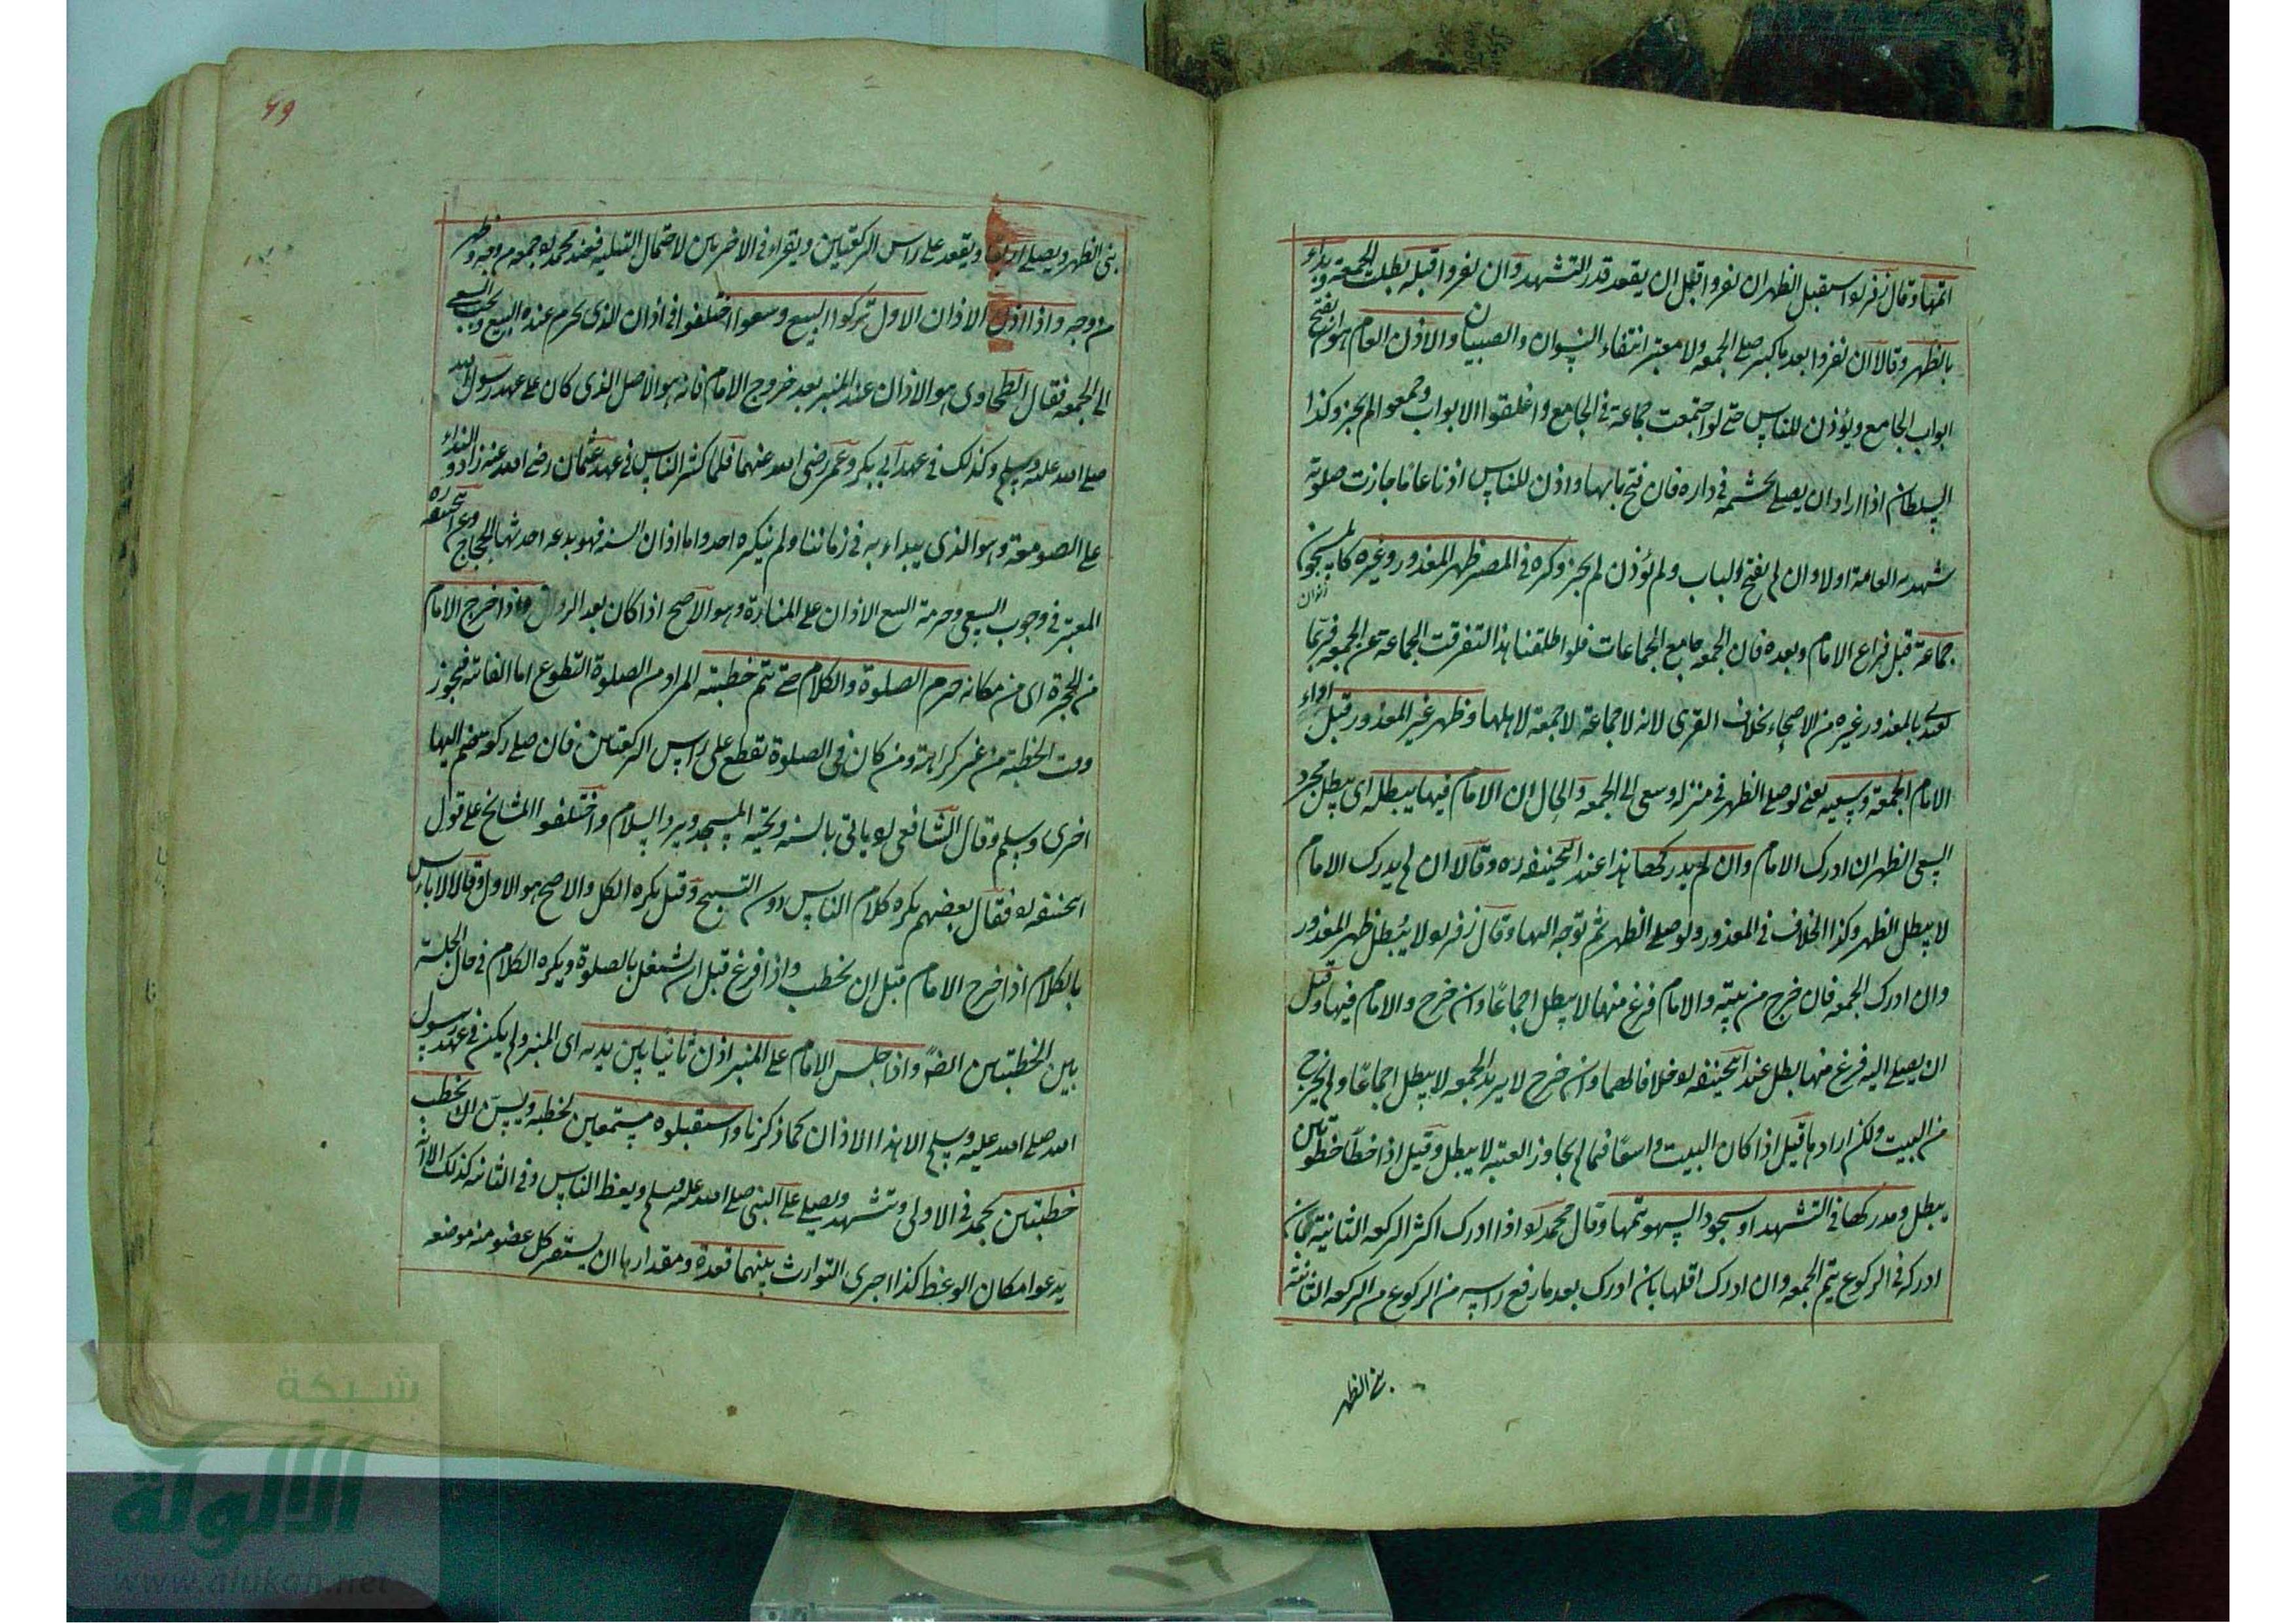 اتمها وقال زفر له استقبل الظهر ان نفروا قبل ان يقعد قدر التشهد وان نفروا قبله بطلت الجمعة وبداء
بالظهر وقالا ان نفروا بعد ما كبر صلى الجمعه ولا معتبر انتفاء النسوان والصبيان والاذن العام هو ان يفتح
ابواب الجامع ويؤذن للناس حتى لو اجتمعت جماعة في الجامع واغلقوا الابواب وجمعوا لم يجز وكذا
السلطان اذا اراد ان يصلى بحشمه في داره فان فتح بابها واذن للناس اذنا عاما جازت صلوته
شهدته العامة اولا وان لم يفتح الباب ولم يؤذن لم يجز وكره في المصر ظهر المعذور وغيره كالمسجون
جماعة قبل فراغ الامام وبعده فان الجمعه جامع الجماعات فلو اطلقنا هذا التفرقت الجماعة عن الجمعه فربما
يقتدى بالمعذور غيره من الاصحاء بخلاف القرى لانه لا جماعة لا جمعة لاهلها وظهر غير المعذور قبل اداء
الامام الجمعة وسعيه يعنى لو صلى الظهر في منزله وسعى الى الجمعه والحال ان الامام فيها يبطله اى يبطل مجرد
السعى الظهر ان ادرك الامام وان لم يدركها هذا عند ابيحنيفه ره وقالا ان لم يدرك الامام
لا يبطل الظهر وكذا الخلاف في المعذور ولو صلى الظهر ثم توجه اليها وقال زفر له لا يبطل ظهر المعذور
وان ادرك الجمعه فان خرج من بيته والامام فرغ منها لا يبطل اجماعا وان خرج والامام فيها وقبل
ان يصلى اليه فرغ منها بطل عند ابيحنيفه له خلافا لهما وان خرج لا يريد الجمعه لا يبطل اجماعا ولم يخرج
من البيت ولكن اراد ما قيل اذا كان البيت واسعا فما لم يجاوز العتبه لا يبطل وقيل اذا خطا خطوتين
يبطل ومدركها في التشهد او سجود السهو يتمها وقال محمد له اذا ادرك اكثر الركعه الثانية بان
ادركه في الركوع يتم الجمعه وان ادرك اقلها بان ادرك بعد ما رفع راسه من الركوع من الركعه الثانية
بنى الظهر
٦٩
بنى الظهر ويصلى اربعا ويقعد على راس الركعتين ويقراء في الاخريين لاحتمال النفليه فعند محمد له جمعه من وجه وظهر
من وجه واذا اذن الاذان الاول تركوا البيع وسعوا اختلفوا في اذان الذى يحرم عنده البيع ويجب السعى
الى الجمعه فقال الطحاوى هو الاذان عند المنبر بعد خروج الامام فانه هو الاصل الذى كان على عهد رسول الله
صلى الله عليه وسلم وكذلك في عهد ابى بكر وعمر رضى الله عنهما فلما كثر الناس في عهد عثمان رضى الله عنه زادوا النداء
على الصومعة وهو الذى يبداء به في زماننا ولم ينكره احد واما اذان السنه فهو بدعه احدثها الحجاج وعن ابيحنيفه ره
المعتبر في وجوب السعى وحرمة البيع الاذان على المنارة وهو الاصح اذا كان بعد الزوال واذا خرج الامام
من الحجرة اى من مكانه حرم الصلوة والكلام حتى تتم خطبته المراد من الصلوة التطوع اما الفائته فيجوز
وقت الخطبة من غير كراهة ومن كان في الصلوة تقطع على راس الركعتين فان صلى ركعه يضم اليها
اخرى وسلم وقال الشافعى له ياتى بالسنه وتحية المسجد ويرد السلام واختلفوا المشائخ على قول
ابيحنيفه له فقال بعضهم يكره كلام الناس دون التسبيح وقيل يكره الكل والاصح هو الاول وقالا لا باس
بالكلام اذا خرج الامام قبل ان يخطب واذا فرغ قبل ان يشتغل بالصلوة ويكره الكلام في حال الجلسة
بين الخطبتين ايضا واذا جلس الامام على المنبر اذن ثانيا بين يديه اى المنبر ولم يكن في عهد رسول
الله صلى الله عليه وسلم الا هذا الاذان كما ذكرنا واستقبلوه مستمعين لخطبه ويسن ان يخطب
خطبتين يحمد في الاولى وتشهد ويصلى على النبى صلى الله عليه وسلم ويعظ الناس وفي الثانيه كذلك الا انه
يدعوا مكان الوعظ كذا جرى التوارث بينهما قعدة ومقدارها ان يستقر كل عضو منه موضعه
شبكة
الألوكة
www.alukah.net